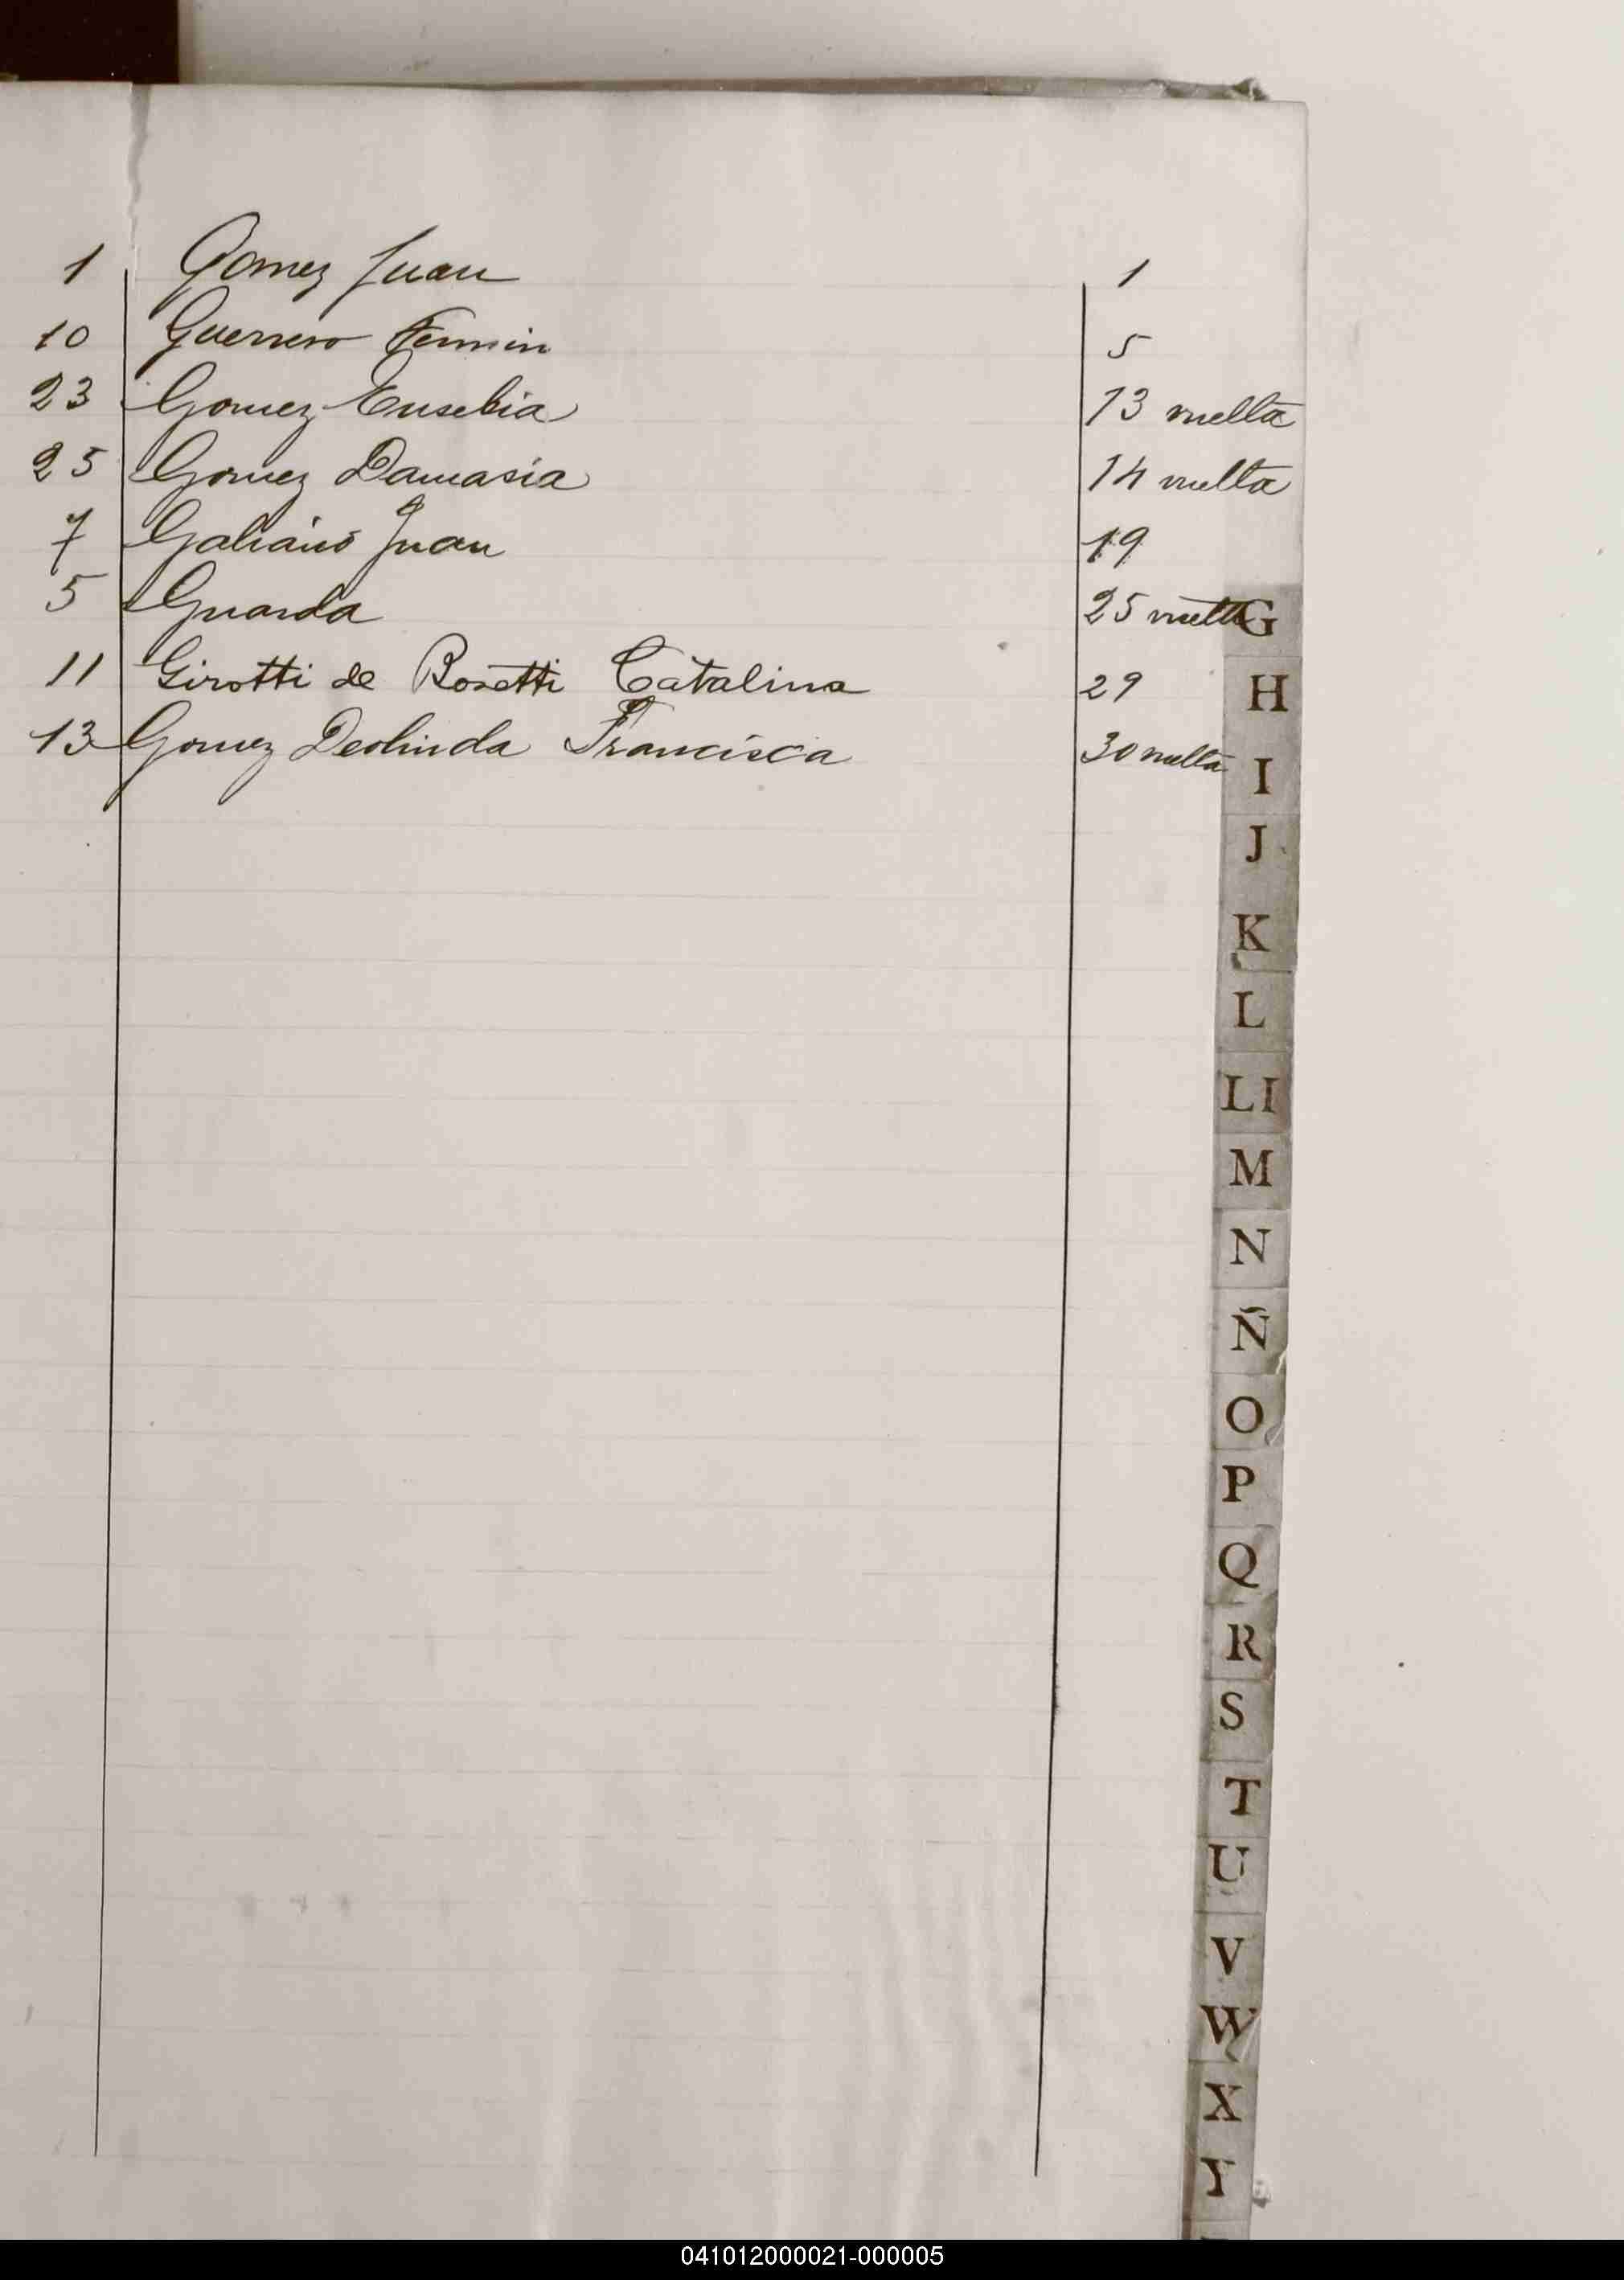 1 Gomez Juan 1
10 Guerrero Fermin 5
23 Gomez Eusebia 13 vuelta
25 Gomez Damasia 14 vuelta
7 Galiano Juan 19
5 Guarda 25 vuelta
G
11 Girotti de Rosetti Catalina 29
H
13 Gomez Deolinda Francisca 30 vuelta
I
J
K
L
Ll
M
N
Ñ
O
P
Q
R
S
T
U
V
W
X
Y
041012000021-000005